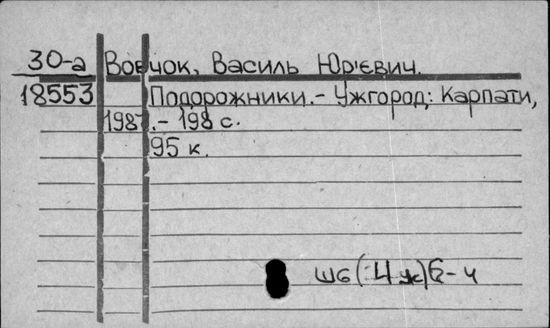 30-а Вовчок, Василь Юрієвич.
18553 Подорожники.- Ужгород; Карпати,
1987.- 198 с.
95 к.
ш6(4ук)6-4